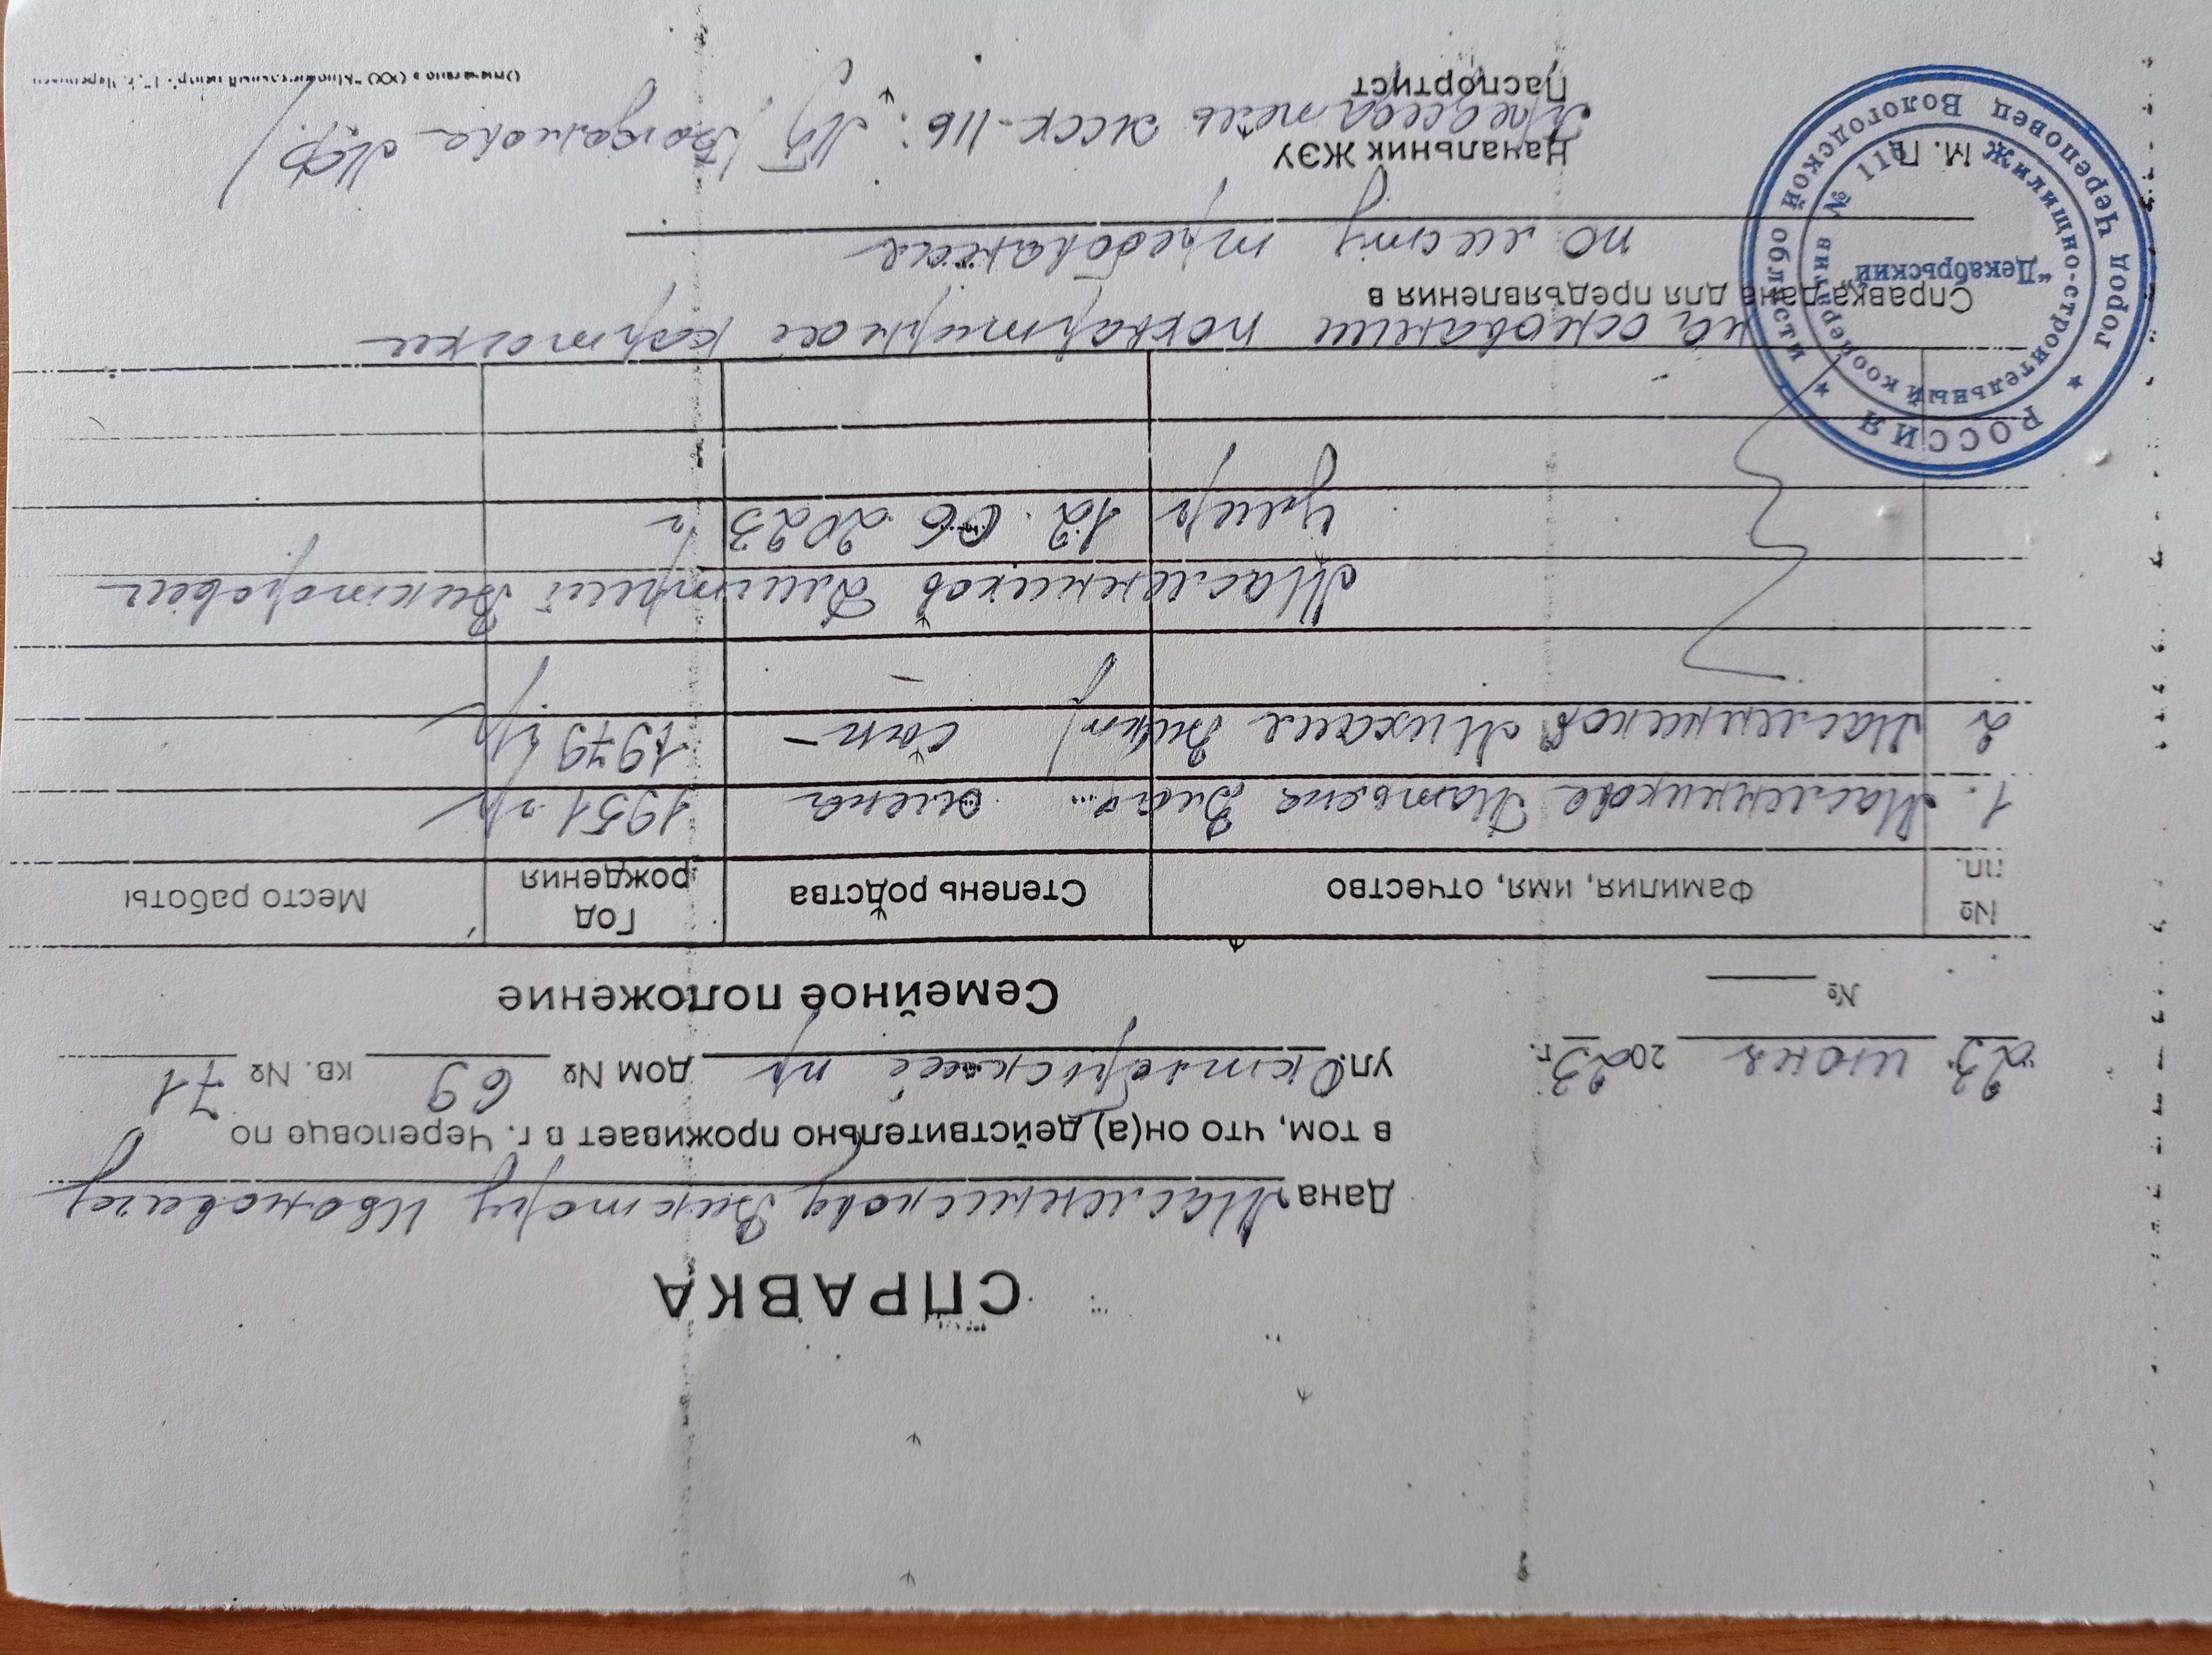 СПРАВКА
Дана Масленникову Виктору Ивановичу
в том, что он(а) действительно проживает в г. Череповце по
ул. Октябрьский пр дом № 69 кв. № 71
23 июня 2023 г.
№
Семейное положение
№ пп. Фамилия, имя, отчество Степень родства Год рождения Место работы
1. Масленникова Татьяна Влад... жена 1951 г/р
2 Масленников Михаил Викт/ сын - 1979 г/р
Масленников Дмитрий Викторович
умер 12.06 2023 г
на основании поквартирной карточки
Справка дана для предъявления в
по месту требования
М. П.
Начальник ЖЭУ
Председатель ЖСК-116:
Паспортист
РОССИЯ
город Череповец Вологодской области
Жилищно-строительный кооператив № 116
"Декабрьский"